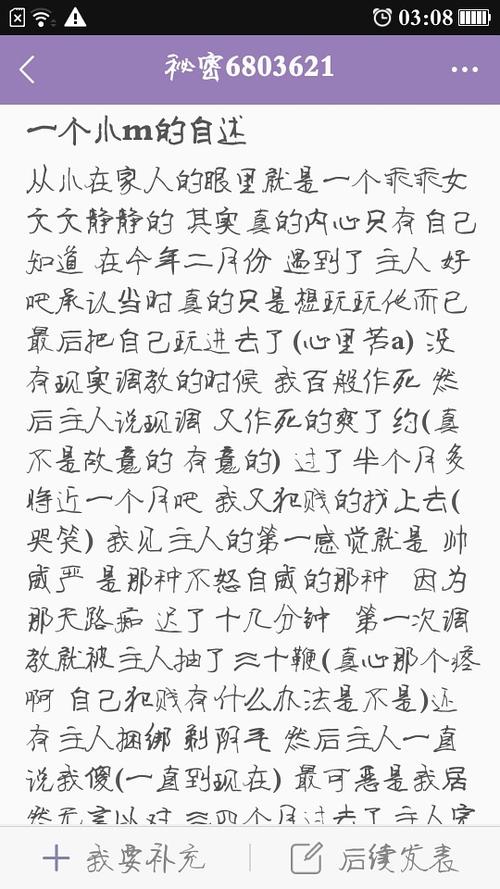 03:08
秘密6803621
一个小m的自述
从小在家人的眼里就是一个乖乖女
文文静静的 其实真的内心只有自己
知道 在今年二月份 遇到了主人 好
吧承认当时真的只是想玩玩他而已
最后把自己玩进去了(心里苦a) 没
有现实调教的时候 我百般作死 然
后主人说现调 又作死的爽了约(真
不是故意的 有意的) 过了半个月多
将近一个月吧 我又犯贱的找上去(
哭笑) 我见主人的第一感觉就是 帅
威严 是那种不怒自威的那种 因为
那天路痴 迟了十几分钟 第一次调
教就被主人抽了三十鞭(真心那个疼
啊 自己犯贱有什么办法是不是)还
有主人捆绑 剃阴毛 然后主人一直
说我傻(一直到现在) 最可恶是我居
然无言以对 三四个月过去了 主人完
我要补充
后续发表